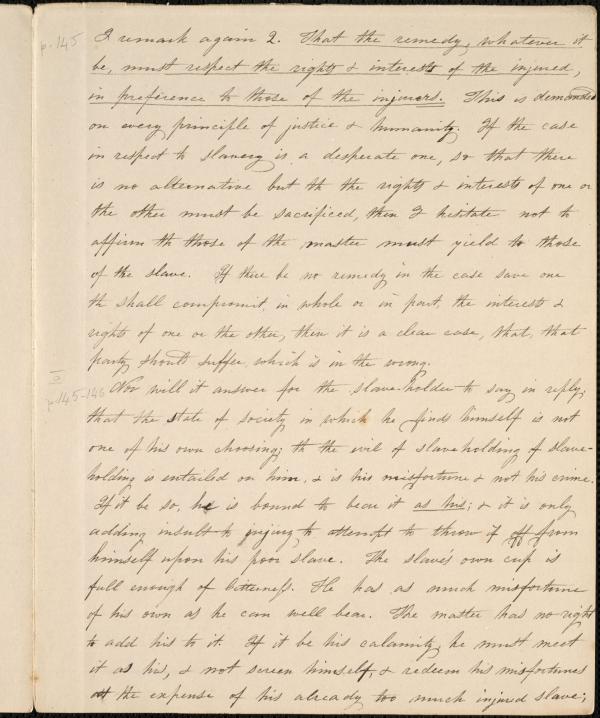 p. 145
I remark again 2. That the remedy, whatever it
be, must respect the rights & interests of the injured,
in preference to those of the injurers. This is demanded
on every principle of justice & humanity. If the case
in respect to slavery is a desperate one, so that there
is no alternative but th the rights & interests of one or
the other must be sacrificed, then I hesitate not to
affirm th those of the master must yield to those
of the slave. If there be no remedy in the case save one
th shall compromit, in whole or in part, the interests &
rights of one or the other, then it is a clear case, that, that
party should suffer, which is in the wrong.
p. 145-146
Nor will it answer for the slave-holder to say in reply,
that the state of society in which he finds himself is not
one of his own choosing; th the evil of slaveholding of slave-
holding is entailed on him, & is his misfortune & not his crime.
If it be so, he is bound to bear it as his; & it is only
adding insult to injury to attempt to throw if off from
himself upon his poor slave. The slave's own cup is
full enough of bitterness. He has as much misfortune
of his own as he can well bear. The master has no right
to add his to it. If it be his calamity, he must meet
it as his, & not screen himself, & redeem his misfortunes
at the expense of his already too much injured slave;